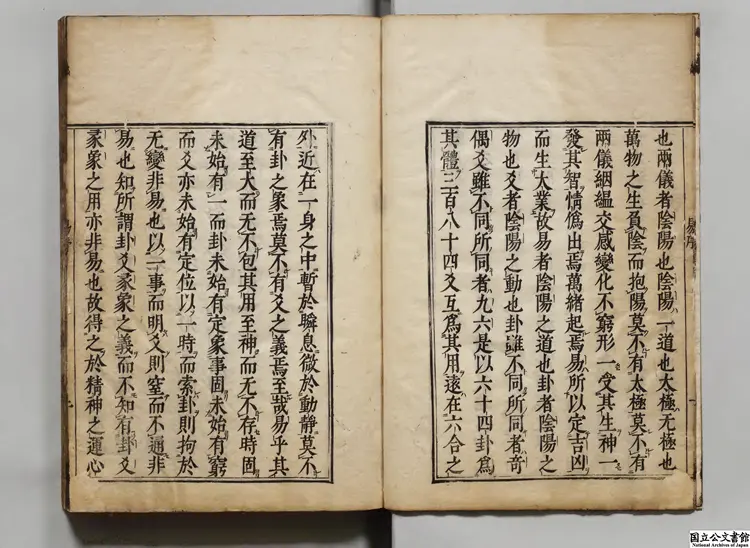 也兩儀者陰陽也陰陽一道也太極无極也
萬物之生負陰而抱陽莫不有太極莫不有
兩儀絪縕交感變化不窮形一受其生神一
發其智情僞出焉萬緒起焉易所以定吉凶
而生大業故易者陰陽之道也卦者陰陽之
物也爻者陰陽之動也卦雖不同所同者奇
偶爻雖不同所同者九六是以六十四卦爲
其體三百八十四爻互爲其用遠在六合之
外近在一身之中暫於瞬息微於動靜莫不
有卦之象焉莫不有爻之義焉至哉易乎其
道至大而无不包其用至神而无不存時固
未始有一而卦未始有定象事固未始有窮
而爻亦未始有定位以一時而索卦則拘於
无變非易也以一事而明爻則窒而不通非
易也知所謂卦爻彖象之義而不知有卦爻
彖象之用亦非易也故得之於精神之運心
国立公文書館
National Archives of Japan